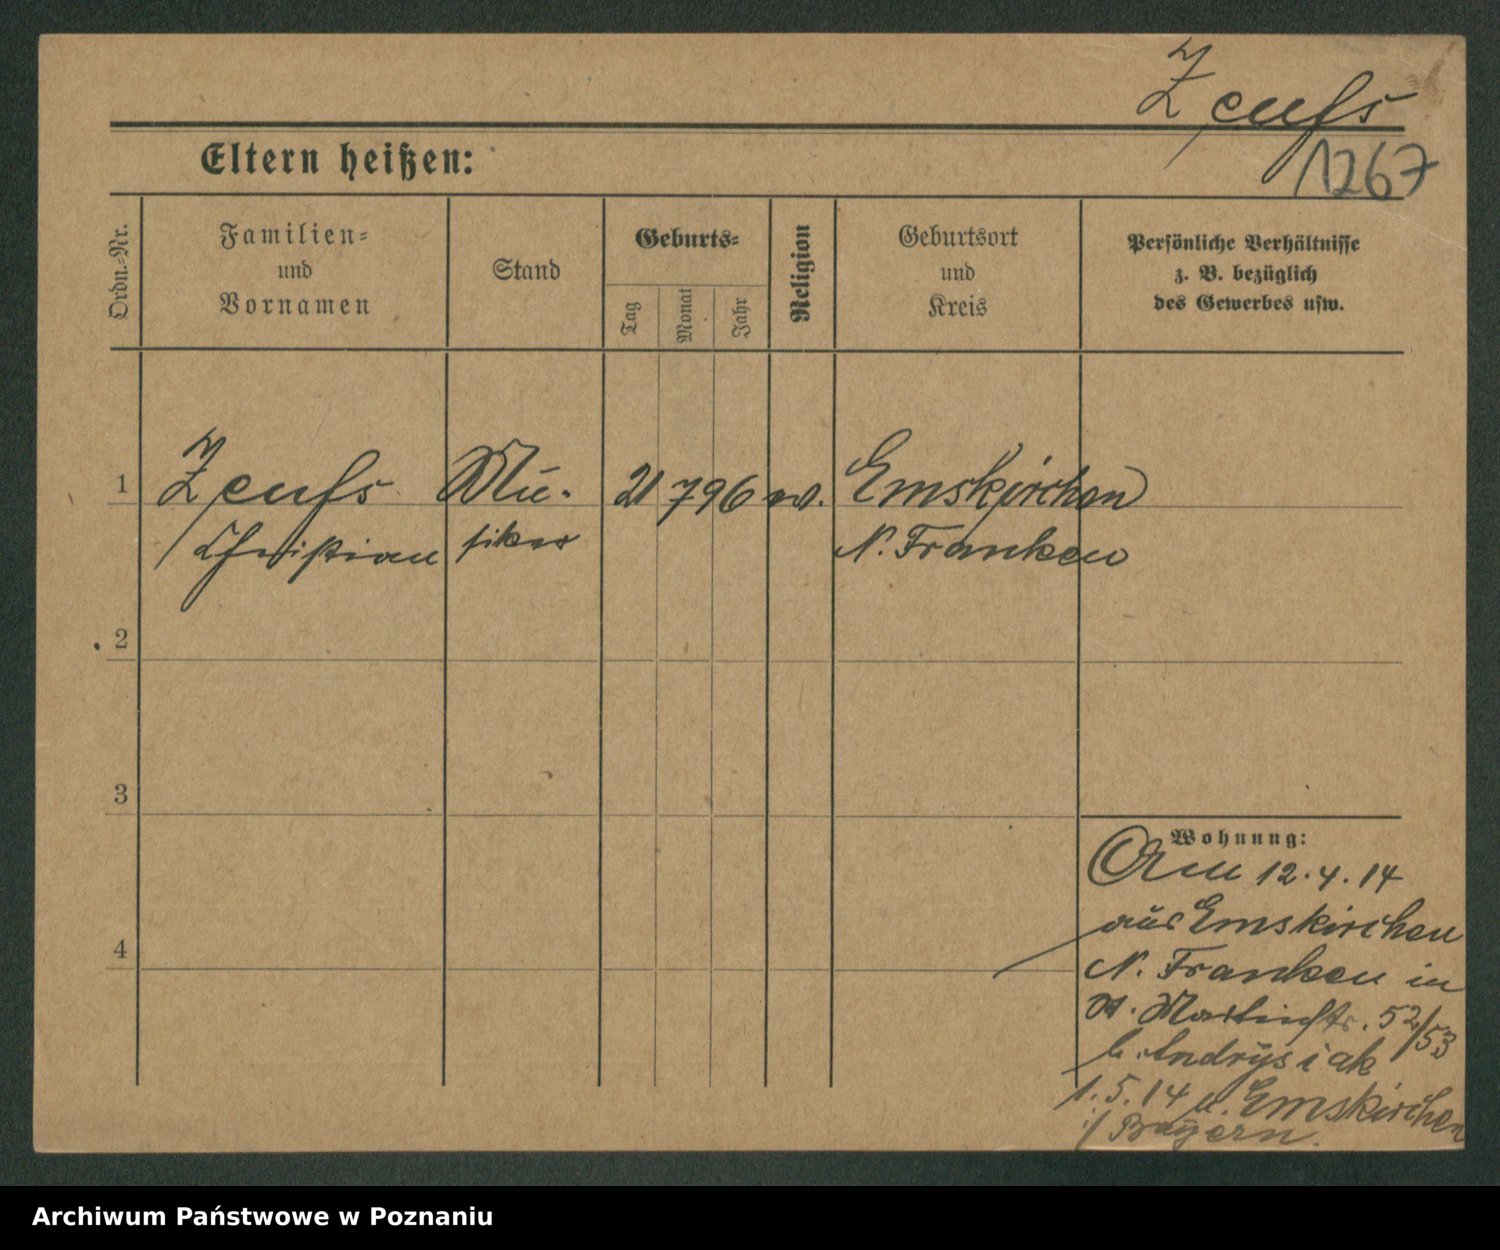 Zeuss
1267
Eltern heißen:
Ordn.-Nr.
Familien-
und
Vornamen
Stand
Geburts-
Tag
Monat
Jahr
Religion
Geburtsort
und
Kreis
Persönliche Verhältnisse
z. B. bezüglich
des Gewerbes usw.
1
Zeuss Mu- 21 7 96 Emskirchen
Christian siker N. Franken
2
3
4
Wohnung:
Am 12.4.14
aus Emskirchen
N. Franken in
St. Martinstr. 52/53
b. Andrysiak
1.5.14 n. Emskirchen
i/ Bayern.
Archiwum Państwowe w Poznaniu